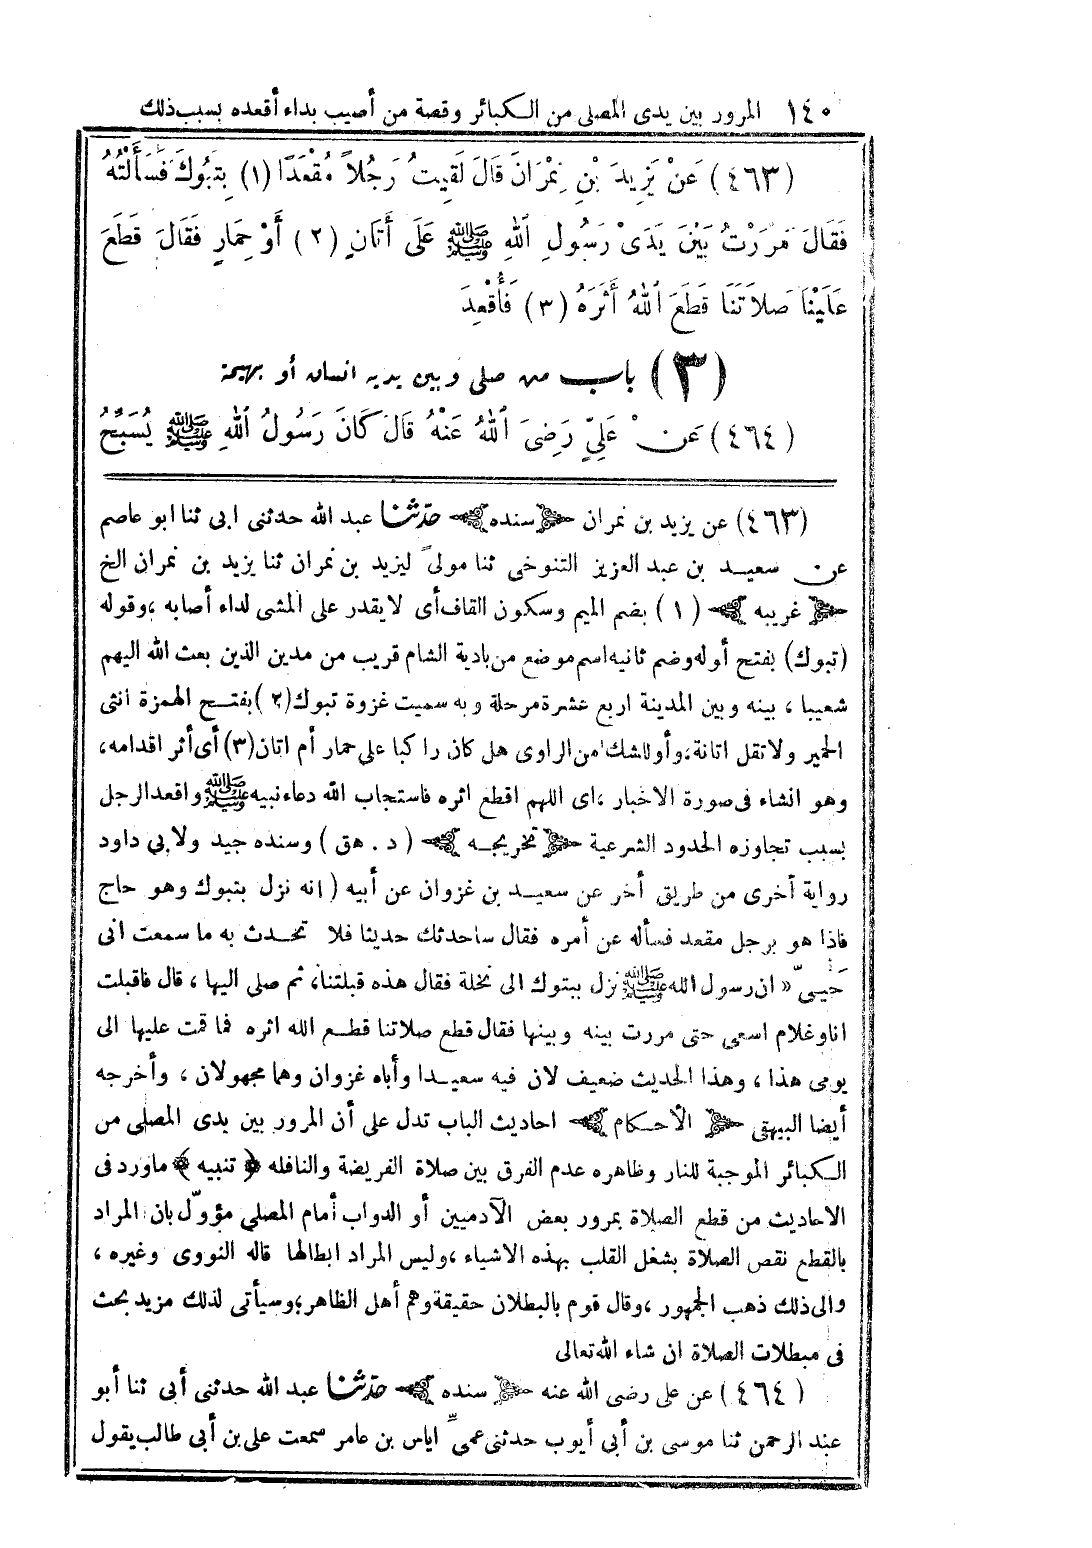 ١٤٠ المرور بين يدى المصلى من الكبائر وقصة من أصيب بداء أقعده بسبب ذلك
(٤٦٣) عَنْ يَزِيدَ بْنِ نِمْرَانَ قَالَ لَقِيتُ رَجُلاً مُقْعَدًا (١) بِتَبُوكَ فَسَأَلْتُهُ
فَقَالَ مَرَرْتُ بَيْنَ يَدَىْ رَسُولِ اللهِ ﷺ عَلَى أَتَانٍ (٢) أَوْ حِمَارٍ فَقَالَ قَطَعَ
عَلَيْنَا صَلاَتَنَا قَطَعَ اللهُ أَثَرَهُ (٣) فَأُقْعِدَ
(٣) باب من صلى وبين يديه انسان أو بهيمة
(٤٦٤) عَنْ عَلِيٍّ رَضِىَ اللهُ عَنْهُ قَالَ كَانَ رَسُولُ اللهِ ﷺ يُسَبِّحُ
(٤٦٣) عن يزيد بن نمران ﴿سنده﴾ حدّثنا عبد الله حدثنى ابى ثنا ابو عاصم
عن سعيد بن عبد العزيز التنوخى ثنا مولىً ليزيد بن نمران ثنا يزيد بن نمران الخ
﴿غريبه﴾ (١) بضم الميم وسكون القاف أى لا يقدر على المشى لداء أصابه ، وقوله
(تبوك) بفتح أوله وضم ثانيه اسم موضع من بادية الشام قريب من مدين الذين بعث الله اليهم
شعيبا ، بينه وبين المدينة اربع عشرة مرحلة وبه سميت غزوة تبوك (٢) بفتح الهمزة انثى
الحمير ولا تقل اتانة ، وأو للشك من الراوى هل كان راكبا على حمار أم اتان (٣) أى أثر اقدامه،
وهو انشاء فى صورة الاخبار ، اى اللهم اقطع اثره فاستجاب الله دعاء نبيه ﷺ واقعد الرجل
بسبب تجاوزه الحدود الشرعية ﴿تخريجه﴾ (د . هق) وسنده جيد ولابى داود
رواية أخرى من طريق أخر عن سعيد بن غزوان عن أبيه (انه نزل بتبوك وهو حاج
فاذا هو برجل مقعد فسأله عن أمره فقال ساحدثك حديثا فلا تحدث به ما سمعت انى
حَيىّ « ان رسول الله ﷺ نزل ببتوك الى نخلة فقال هذه قبلتنا، ثم صلى اليها ، قال فاقبلت
انا وغلام اسعى حتى مررت بينه وبينها فقال قطع صلاتنا قطع الله اثره فما قمت عليها الى
يومى هذا ، وهذا الحديث ضعيف لان فيه سعيدا وأباه غزوان وهما مجهولان ، وأخرجه
أيضا البيهقى ﴿الأحكام﴾ احاديث الباب تدل على أن المرور بين يدى المصلى من
الكبائر الموجبة للنار وظاهره عدم الفرق بين صلاة الفريضة والنافله ﴿تنبيه﴾ ماورد فى
الاحاديث من قطع الصلاة بمرور بعض الآدميين أو الدواب أمام المصلى مؤوّل بان المراد
بالقطع نقص الصلاة بشغل القلب بهذه الاشياء ، وليس المراد ابطالها قاله النووى وغيره ،
والى ذلك ذهب الجمهور ، وقال قوم بالبطلان حقيقة وهم أهل الظاهر؛ وسيأتى لذلك مزيد بحث
فى مبطلات الصلاة ان شاء الله تعالى
(٤٦٤) عن على رضى الله عنه ﴿سنده﴾ حدّثنا عبد الله حدثنى أبى ثنا أبو
عبد الرحمن ثنا موسى بن أبى أيوب حدثنى عمىّ اياس بن عامر سمعت على بن أبى طالب يقول